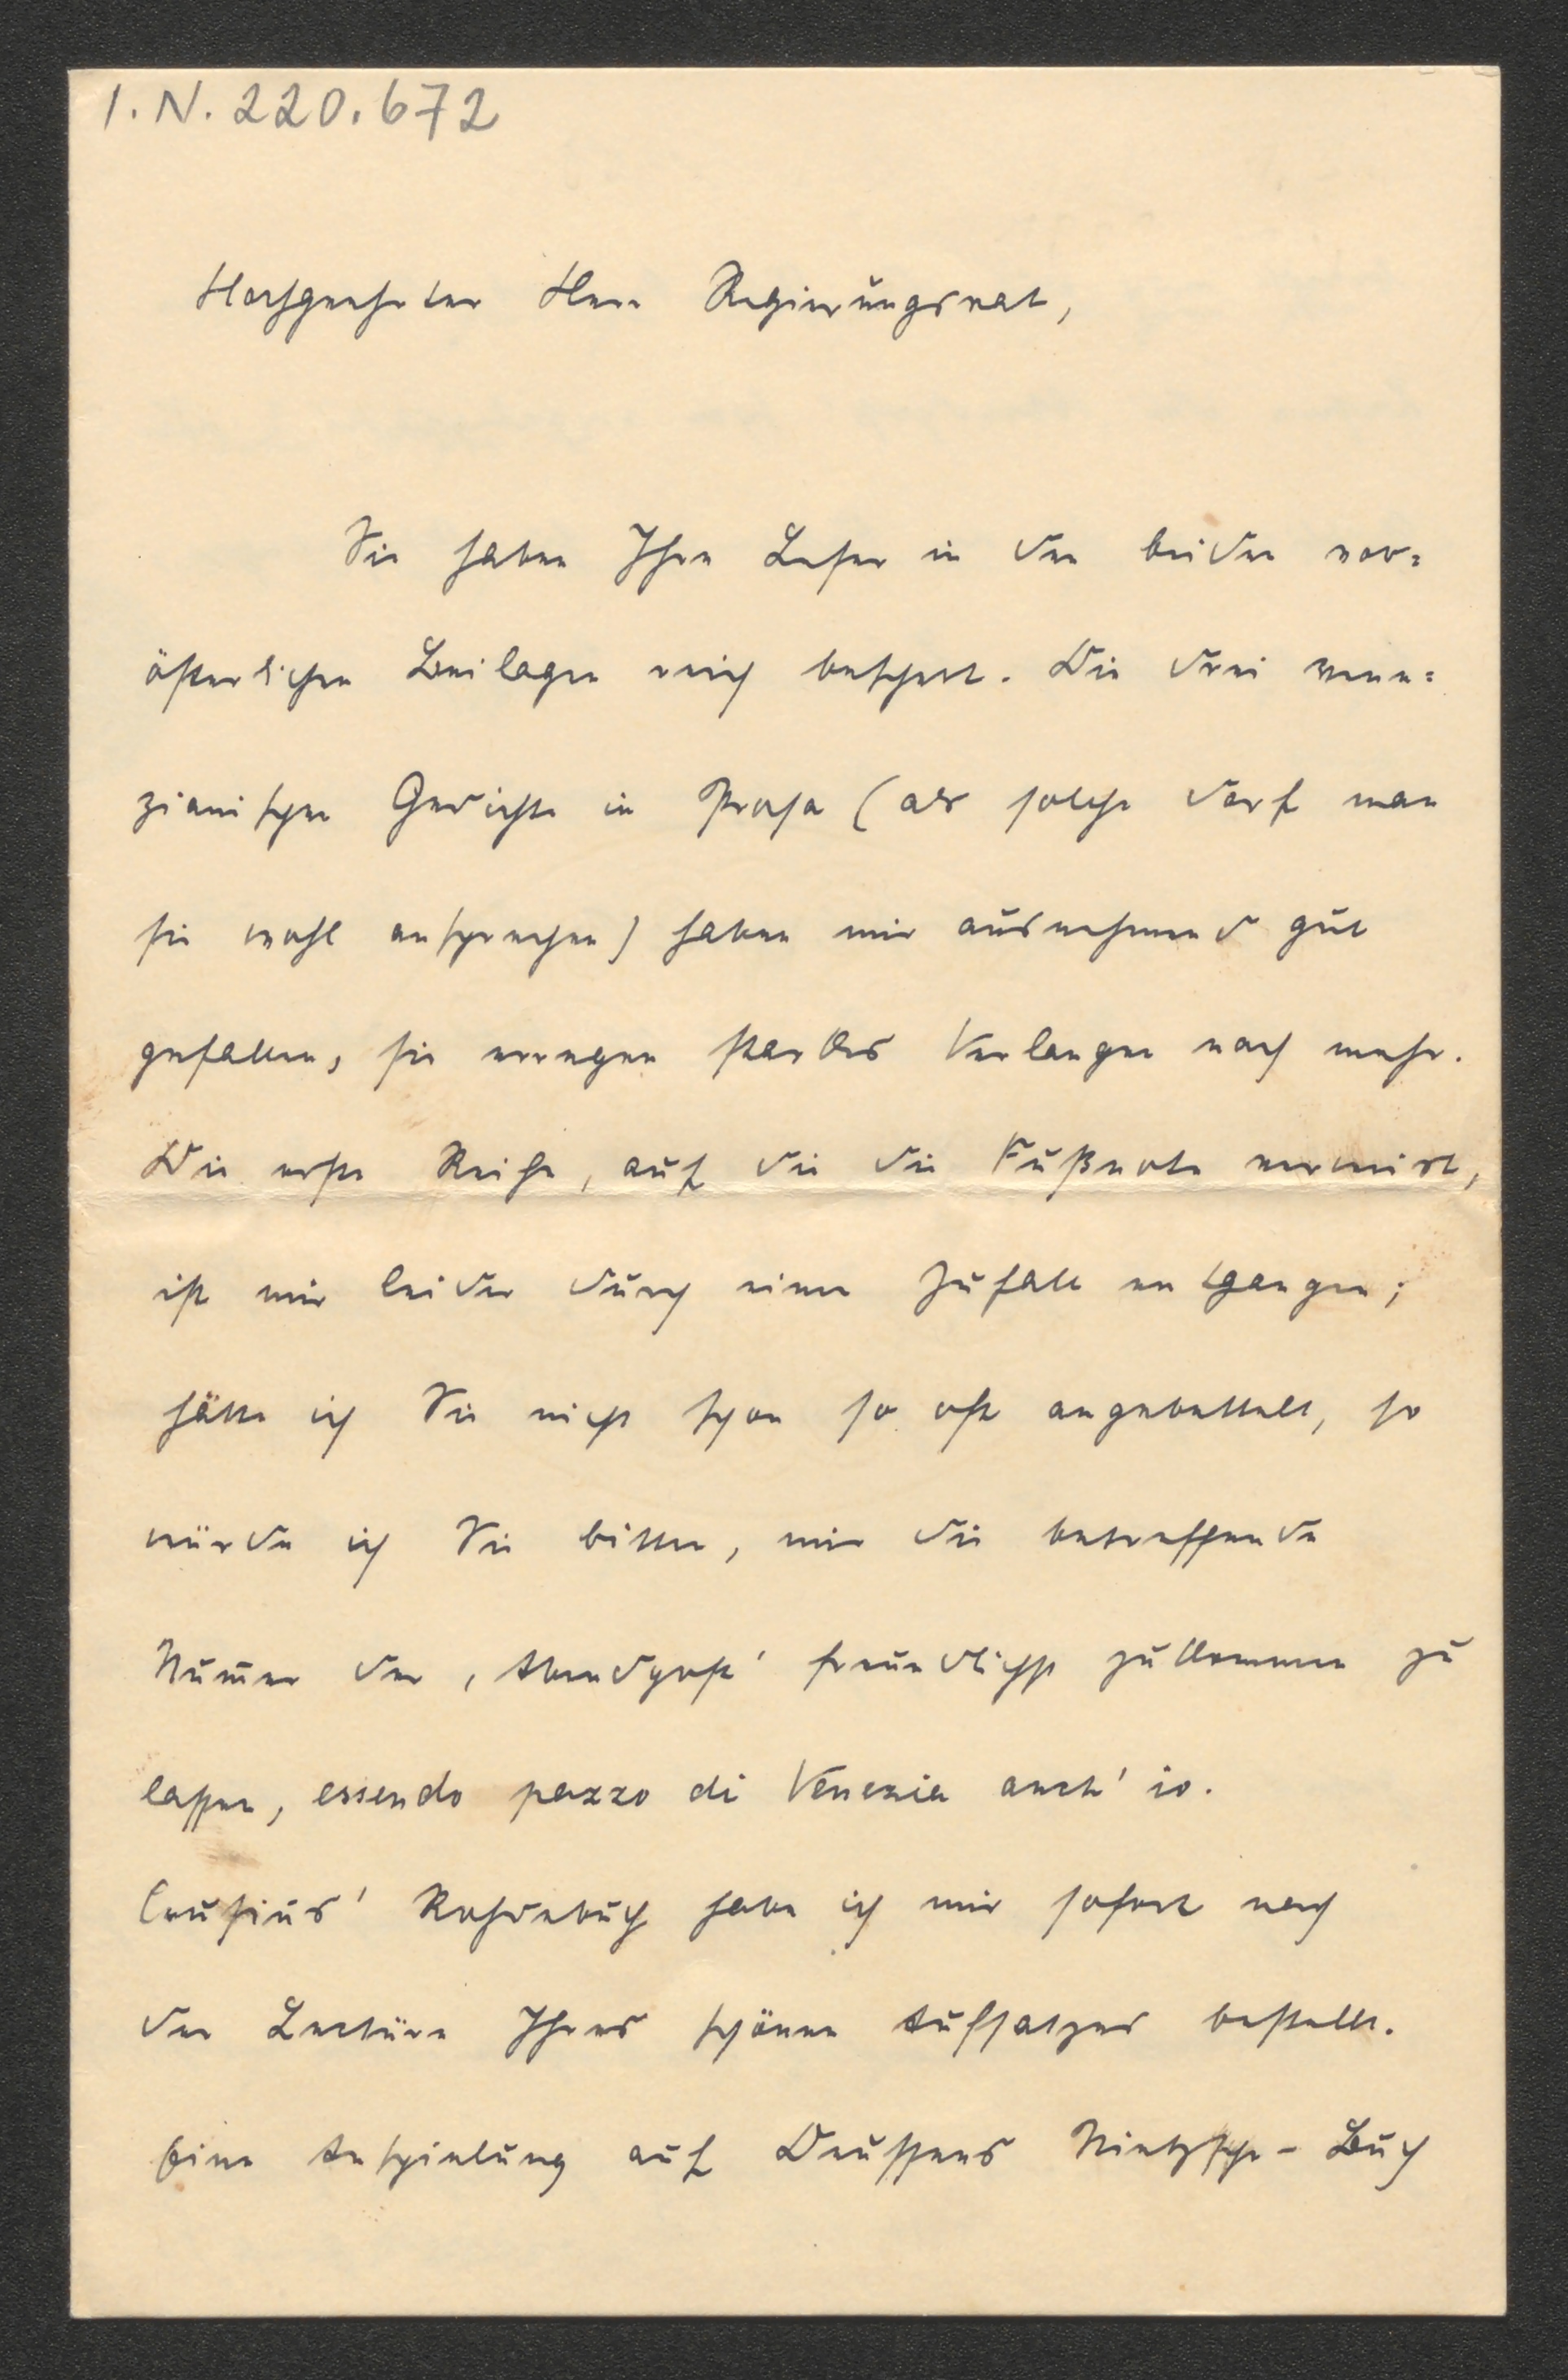 I.N. 220.672
Hochgeehrter Herr Regierungsrat,
Sie haben Ihre Leser in den beiden vor=
österlichen Beilagen reich beschert. Die drei vene=
zianischen Gedichte in Prosa (als solche darf man
sie wohl ansprechen) haben mir ausnehmend gut
gefallen, sie erregen starkes Verlangen nach mehr.
Die erste Reihe, auf die die Fußnote verweist,
ist mir leider durch einen Zufall entgangen;
hätte ich Sie nicht schon so oft angebettelt, so
würde ich Sie bitten, mir die betreffende
Num̅er der ‚Abendpost' freundlichst zukommen zu
lassen, essendo pazzo di Venezia anch' io.
Crusius' Rohdebuch habe ich mir sofort nach
der Lectüre Ihres schönen Aufsatzes bestellt.
Eine Anspielung auf Deussens Nietzsche-Buch